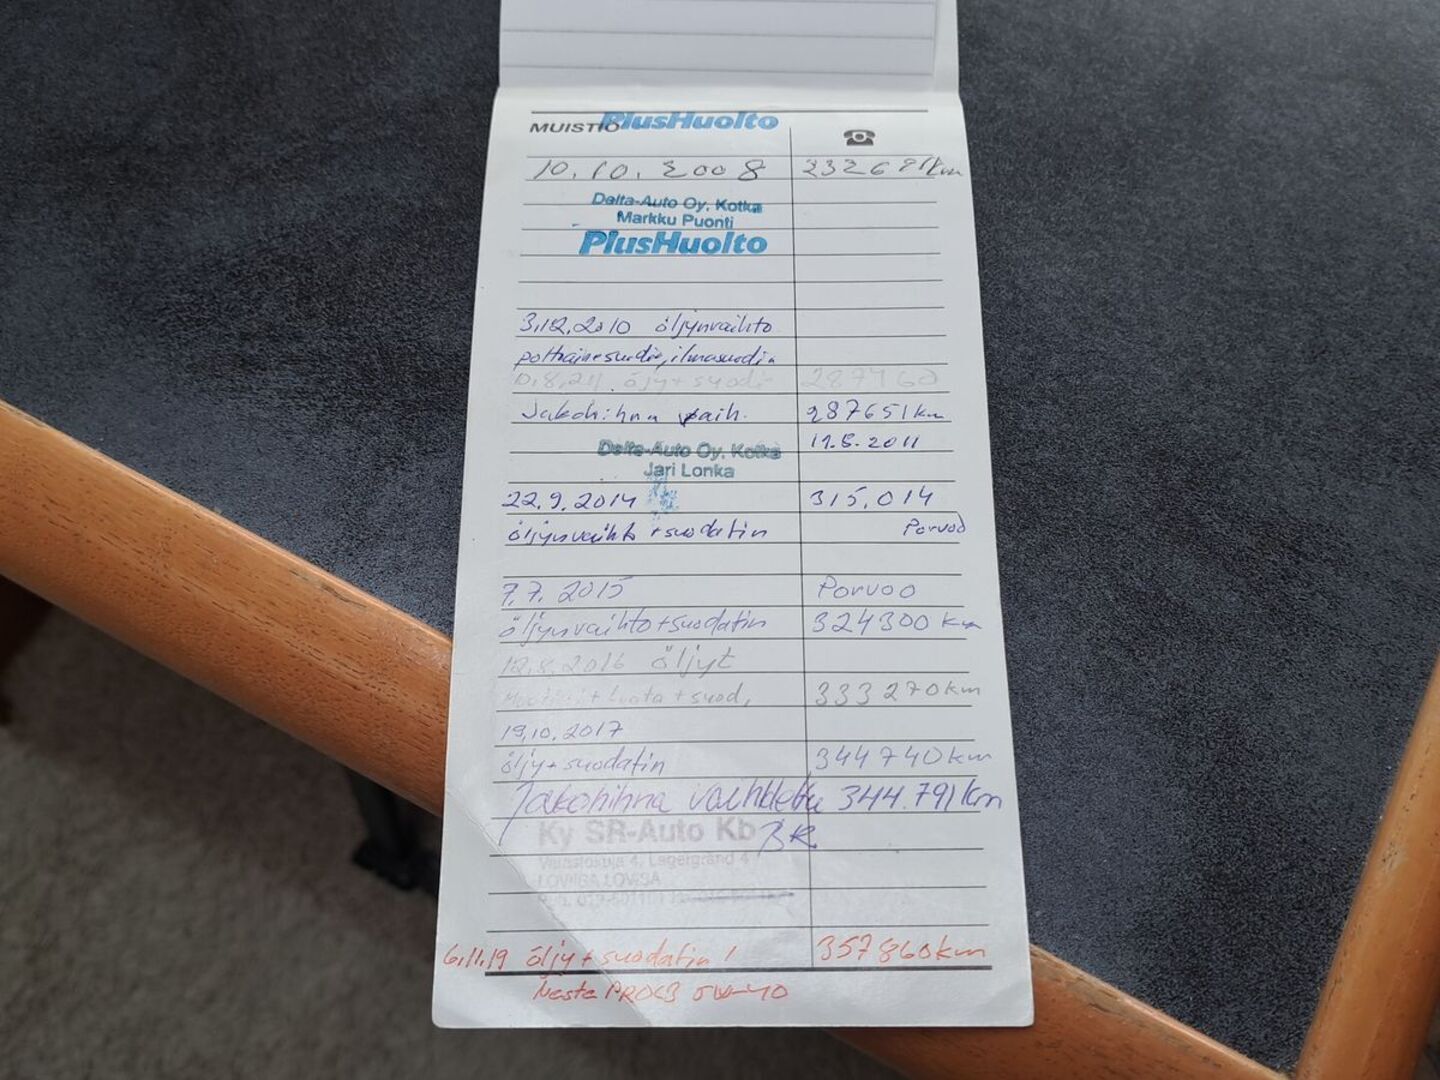 MUISTIO PlusHuolto
10.10.2008 232681km
Delta-Auto Oy. Kotka
Markku Puonti
PlusHuolto
3.12.2010 öljynvaihto
polttainesuodin, ilmasuodin
10.8.211 öljy+suodi 287460
Jakohihna vaih. 287651km
11.8.2011
Delta-Auto Oy. Kotka
Jari Lonka
22.9.2014 315.014
öljynvaihto + suodatin Porvoo
7.7.2015 Porvoo
öljynvaihto+suodatin 324300 km
12.8.2016 öljyt
+ suod, 333270km
19.10.2017
öljy+suodatin 344740km
Jakohihna vaihdettu 344.791km
Ky SR-Auto Kb BR
Varastokuja 4, Lagergränd 4
LOVIISA LOVISA
6.11.19 öljy + suodatin! 357860km
Neste 5W-40